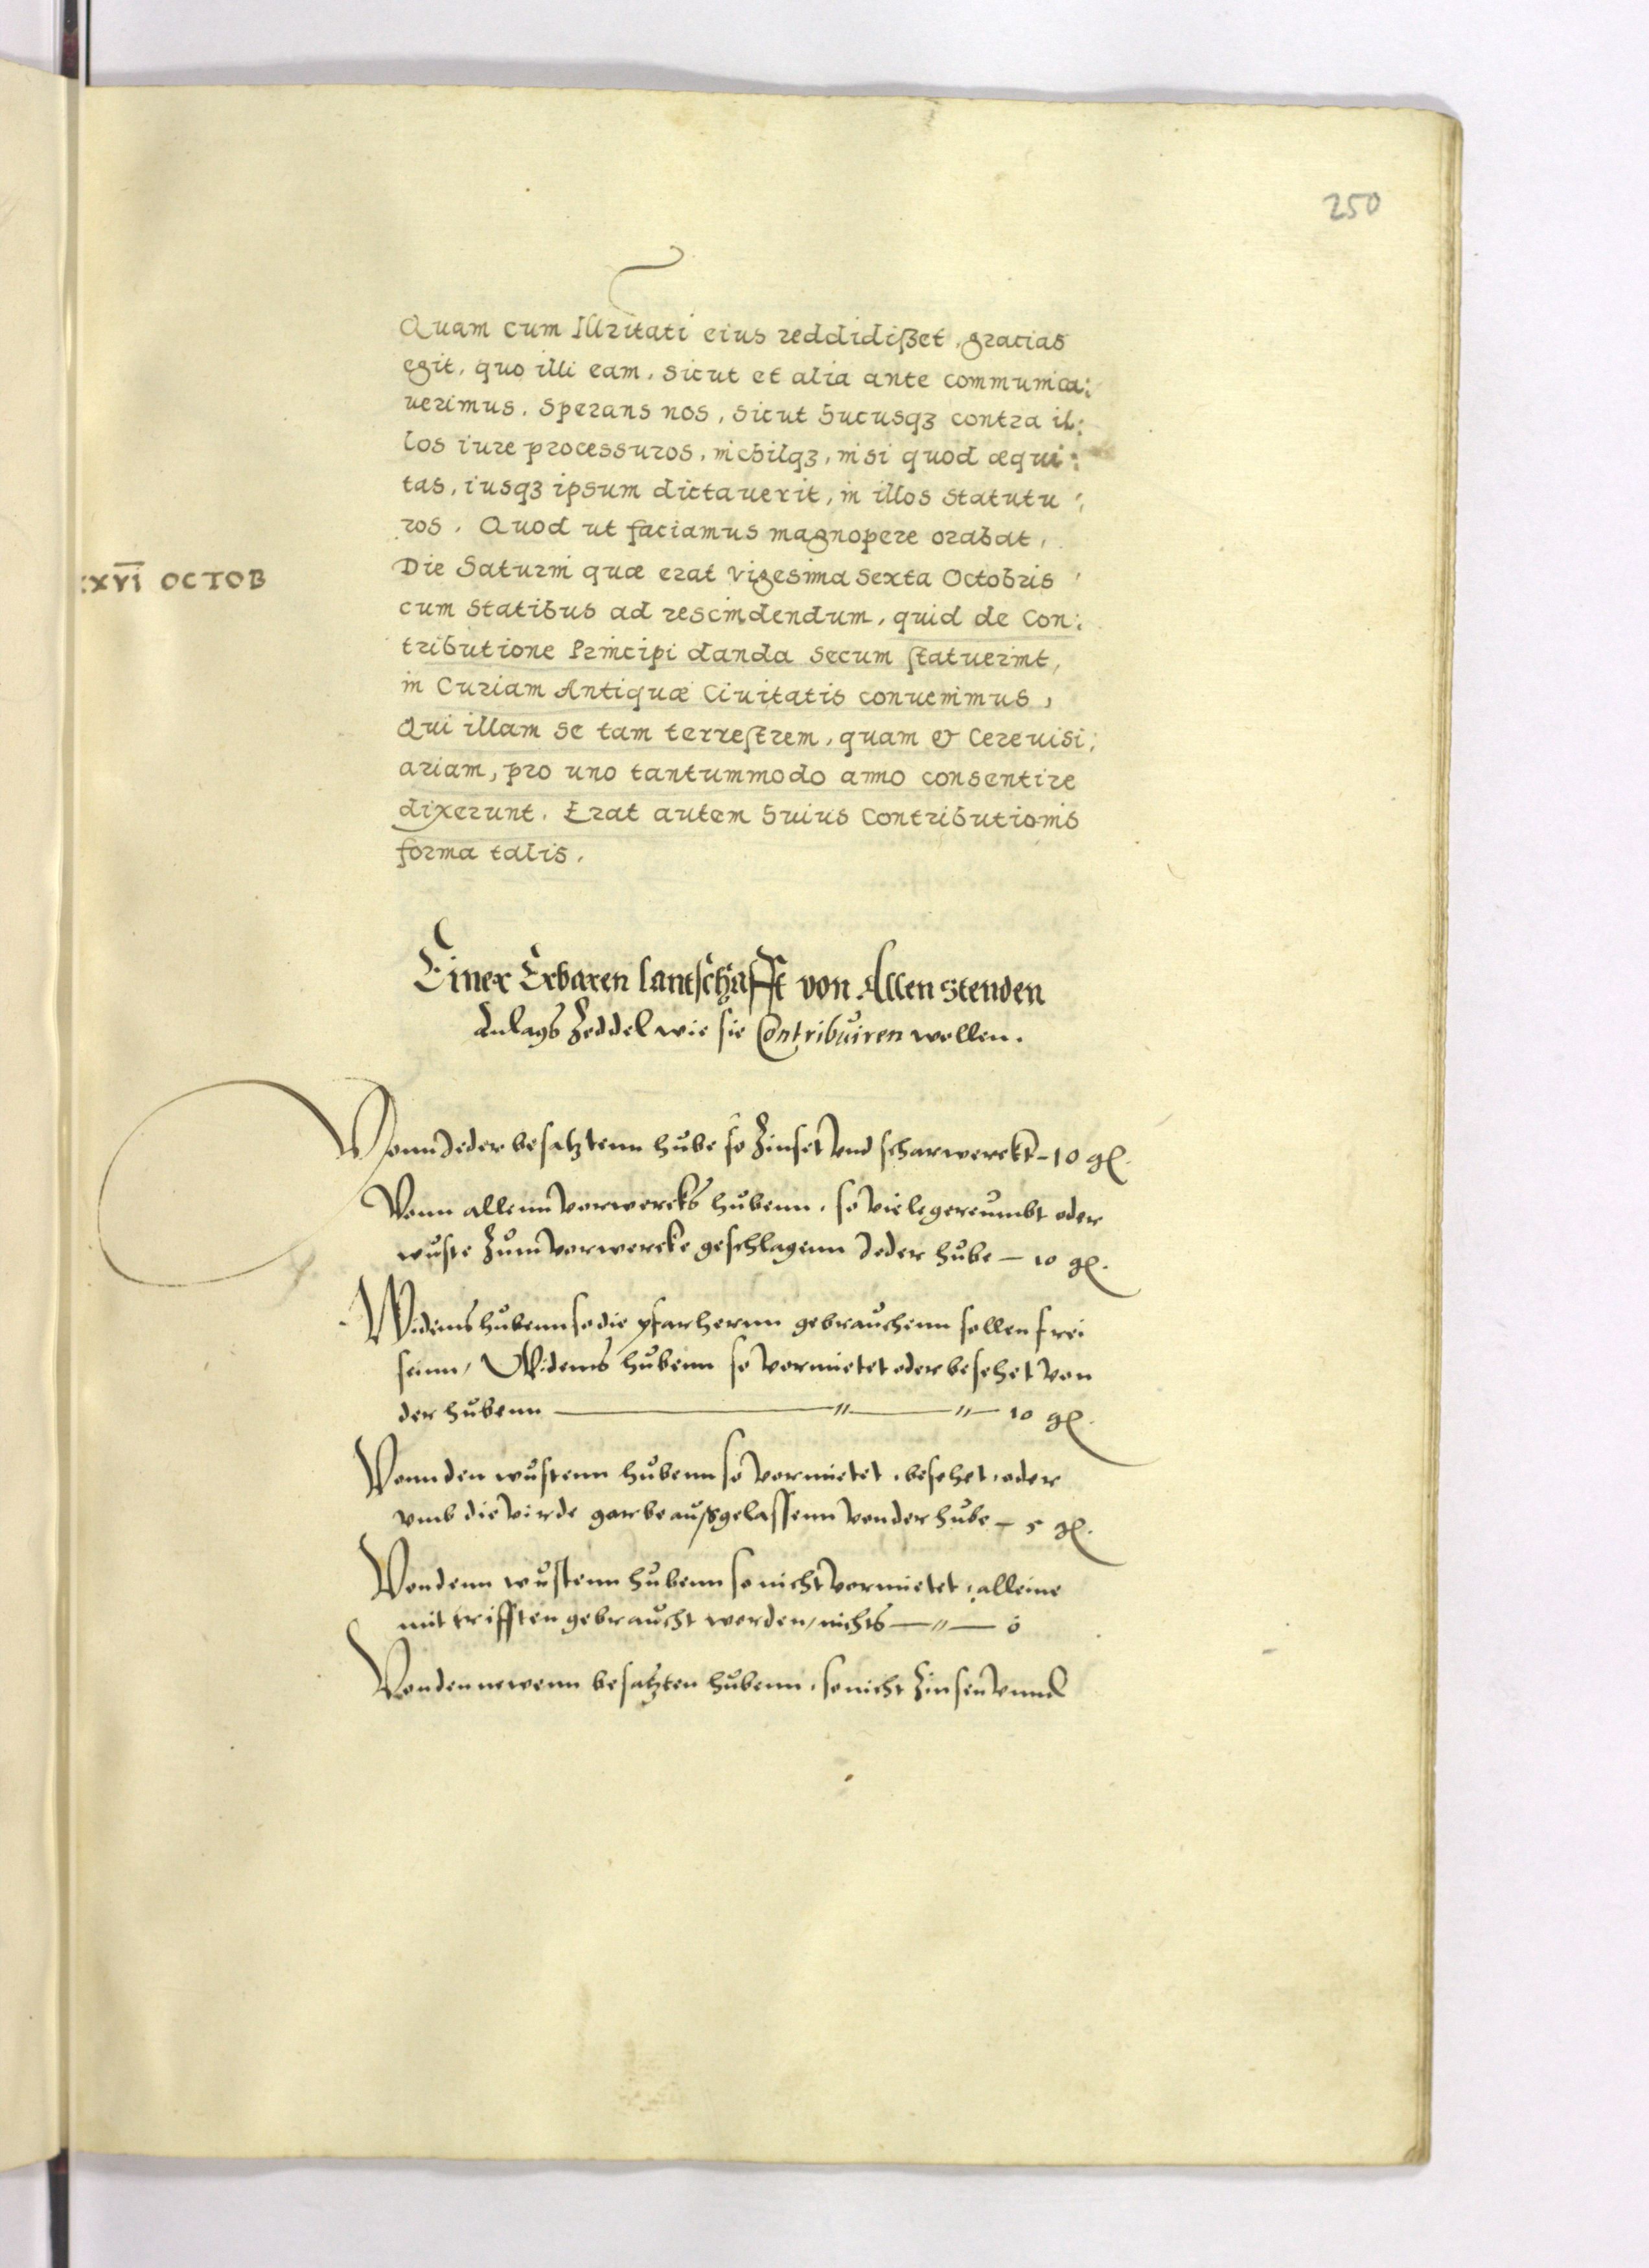 250
Quam cum Illritati eius reddidißet, gratias
egit, quo illi eam, sicut et alia ante communica:
uerimus. Sperans nos, sicut hucusqꝫ contra il:
los iure processuros, nichilqꝫ, nisi quod æqui:
tas, iusqꝫ ipsum dictauerit, in illos statutu:
ros. Quod ut faciamus magnopere orabat,
XXVI OCTOB
Die Saturni quæ erat vigesima sexta Octobris
cum Statibus ad rescindendum, quid de Con:
tributione Principi danda secum statuerint,
in Curiam Antiquæ Ciuitatis conuenimus,
Qui illam se tam terrestrem, quam & Cereuisi:
ariam, pro uno tantummodo anno consentire
dixerunt. Erat autem huius Contributionis
forma talis.
Einer Erbaren lantschafft von Allen stenden
Anlags Zeddel wie sie Contribuiren wollen.
Vonn Jeder besatztenn hube so Zinset vnd scharwerckt - 10 gl.
Vonn allenn vorwercks hubenn, so viele gereumbt oder
wuste Zum vorwercke geschlagenn Jeder hube - 10 gl.
Widems hubenn so die pfarhernn gebrauchenn sollen frei
seinn, Widems hubenn so vormietet oder besehet von
der hubenn — " — " — 10 gl.
Vonn den wustenn hubenn so vormietet, besehet, oder
vmb die virde garbe außgelassenn von der hube - 5 gl.
Von denn wustenn hubenn so nicht vormietet, alleine
mit trifften gebraucht werden, nichts — " — 0
Von den newenn besatzten hubenn, so nicht Zinsen vnnd